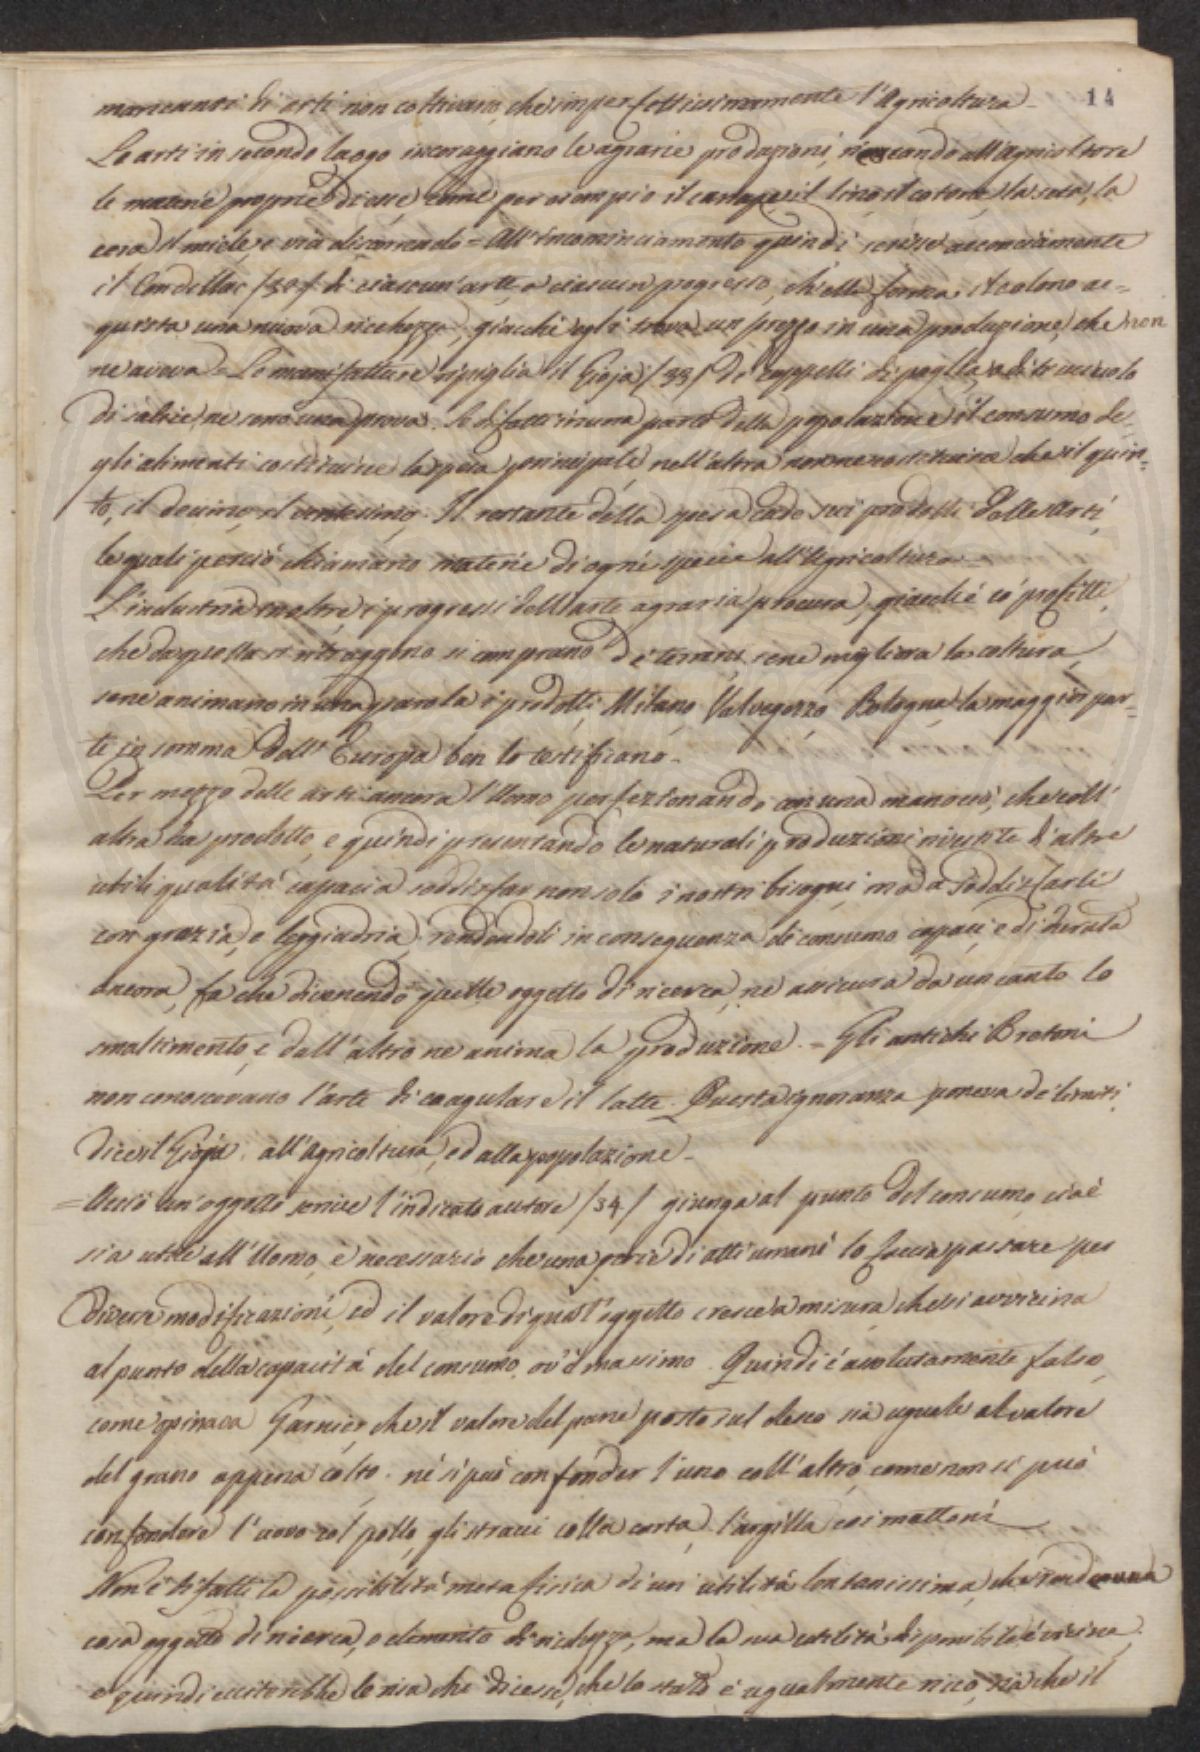 mancanti di arti non coltivano, che imperfettissimamente l'Agricoltura - 14
Le arti in secondo luogo incoraggiano le agrarie produzioni, ricercando all'agricoltore
le materie proprie di esse come per esempio il canape, il lino, il cotone, la seta, la
cera, il miele, e via discorrendo = All'incominciamento quindi scrisse acconciamente
il Condellac /32/ di ciascun'arte, a ciascun progresso, ch'ella forma, il colono ac=
quista una nuova ricchezza, giacchè egli trova un prezzo in una produzione, che non
ne aveva = Le manifatture ripiglia il Gioja /33/ di cappelli di paglia, e di truciolo
di salcio, ne sono una prova. Se difatti in una parte della popolazione il consumo de=
gli alimenti costituisce la spesa principale, nell'altra non ne costituisce che il quin=
to, il decimo, il ventesimo. Il restante della spesa cade sui prodotti dalle Arti,
le quali perciò chiamano materie di ogni specie all'Agricoltura -
L'industria inoltre i progressi dell'arte agraria procura, giacchè co' profitti,
che da quella si ritraggono si comprano de' terreni, se ne migliora la coltura,
se ne animano in una parola i prodotti. Milano, Valvegezzo, Bologna, la maggior par=
te in somma dell'Europa ben lo testificano -
Per mezzo delle arti ancora l'Uomo perfezionando con una mano ciò, che coll'
altra ha prodotto, e quindi presentando le naturali produzioni rivestite d'altre
utili qualità capaci a soddisfar non solo i nostri bisogni, ma a soddisfarli
con grazia, e leggiadria, rendendoli in conseguenza di consumo capaci, e di durata
ancora, fa che divenendo quelle oggetto di ricerca, ne assicura da un canto lo
smaltimento, e dall'altro ne anima la produzione. = Gli antichi Bretoni
non conoscevano l'arte di coagulare il latte. Questa ignoranza poneva de' limiti,
dice il Gioja, all'Agricoltura, ed alla popolazione -
= Acciò un'oggetto scrisse l'indicato autore /34/ giunga al punto del consumo, cioè
sia utile all'Uomo, è necessario che una serie di atti umani lo faccia passare per
diverse modificazioni, ed il valore di quest'oggetto cresce a misura, che si avvicina
al punto della capacità del consumo, ov'è massimo. Quindi è assolutamente falso,
come opinava Garnier, che il valore del pane posto sul desco sia uguale al valore
del grano appena colto. nè si può confonder l'uno coll'altro, come non si può
confondere l'uovo col pollo, gli stracci colla carta, l'argilla coi mattoni
Non è difatti la possibilità metafisica di un'utilità lontanissima, che rende una
cosa oggetto di ricerca, o elemento di richezza, ma la sua utilità disponibile, è vicina,
e quindi ecciterebbe le risa chi dicesse, che lo stato è ugualmente ricco, sia che il